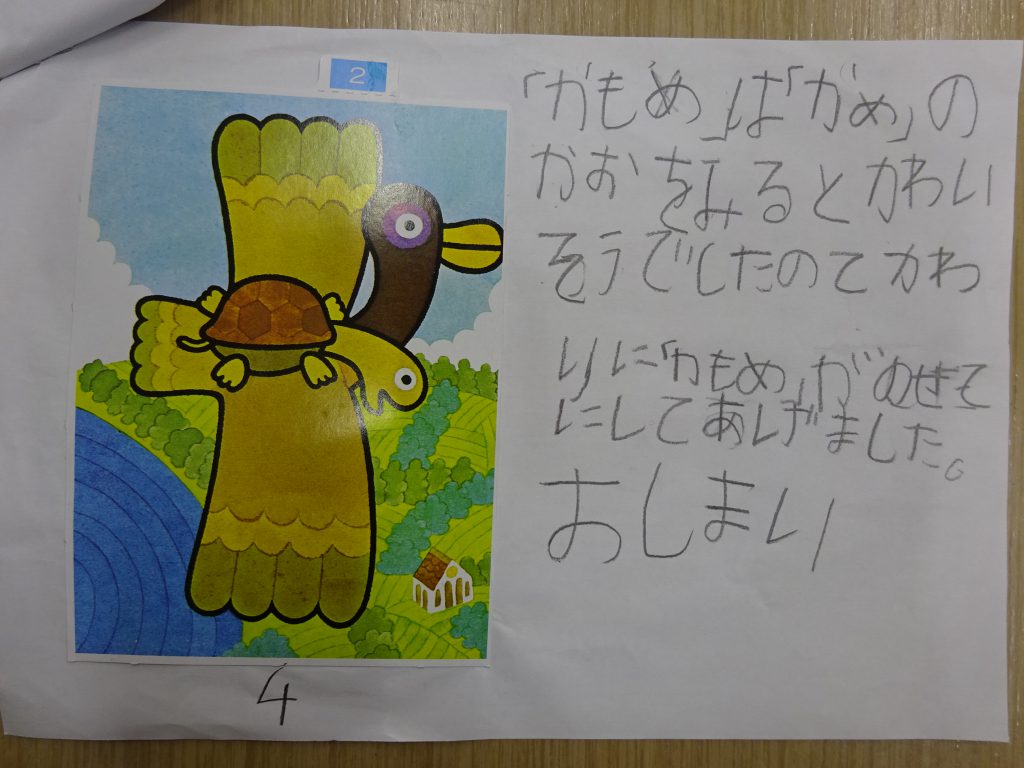 2
「かもめ」は「かめ」の
かおをみるとかわい
そうでしたのでかわ
りに「かもめ」がのせて
にしてあげました。
おしまい
4